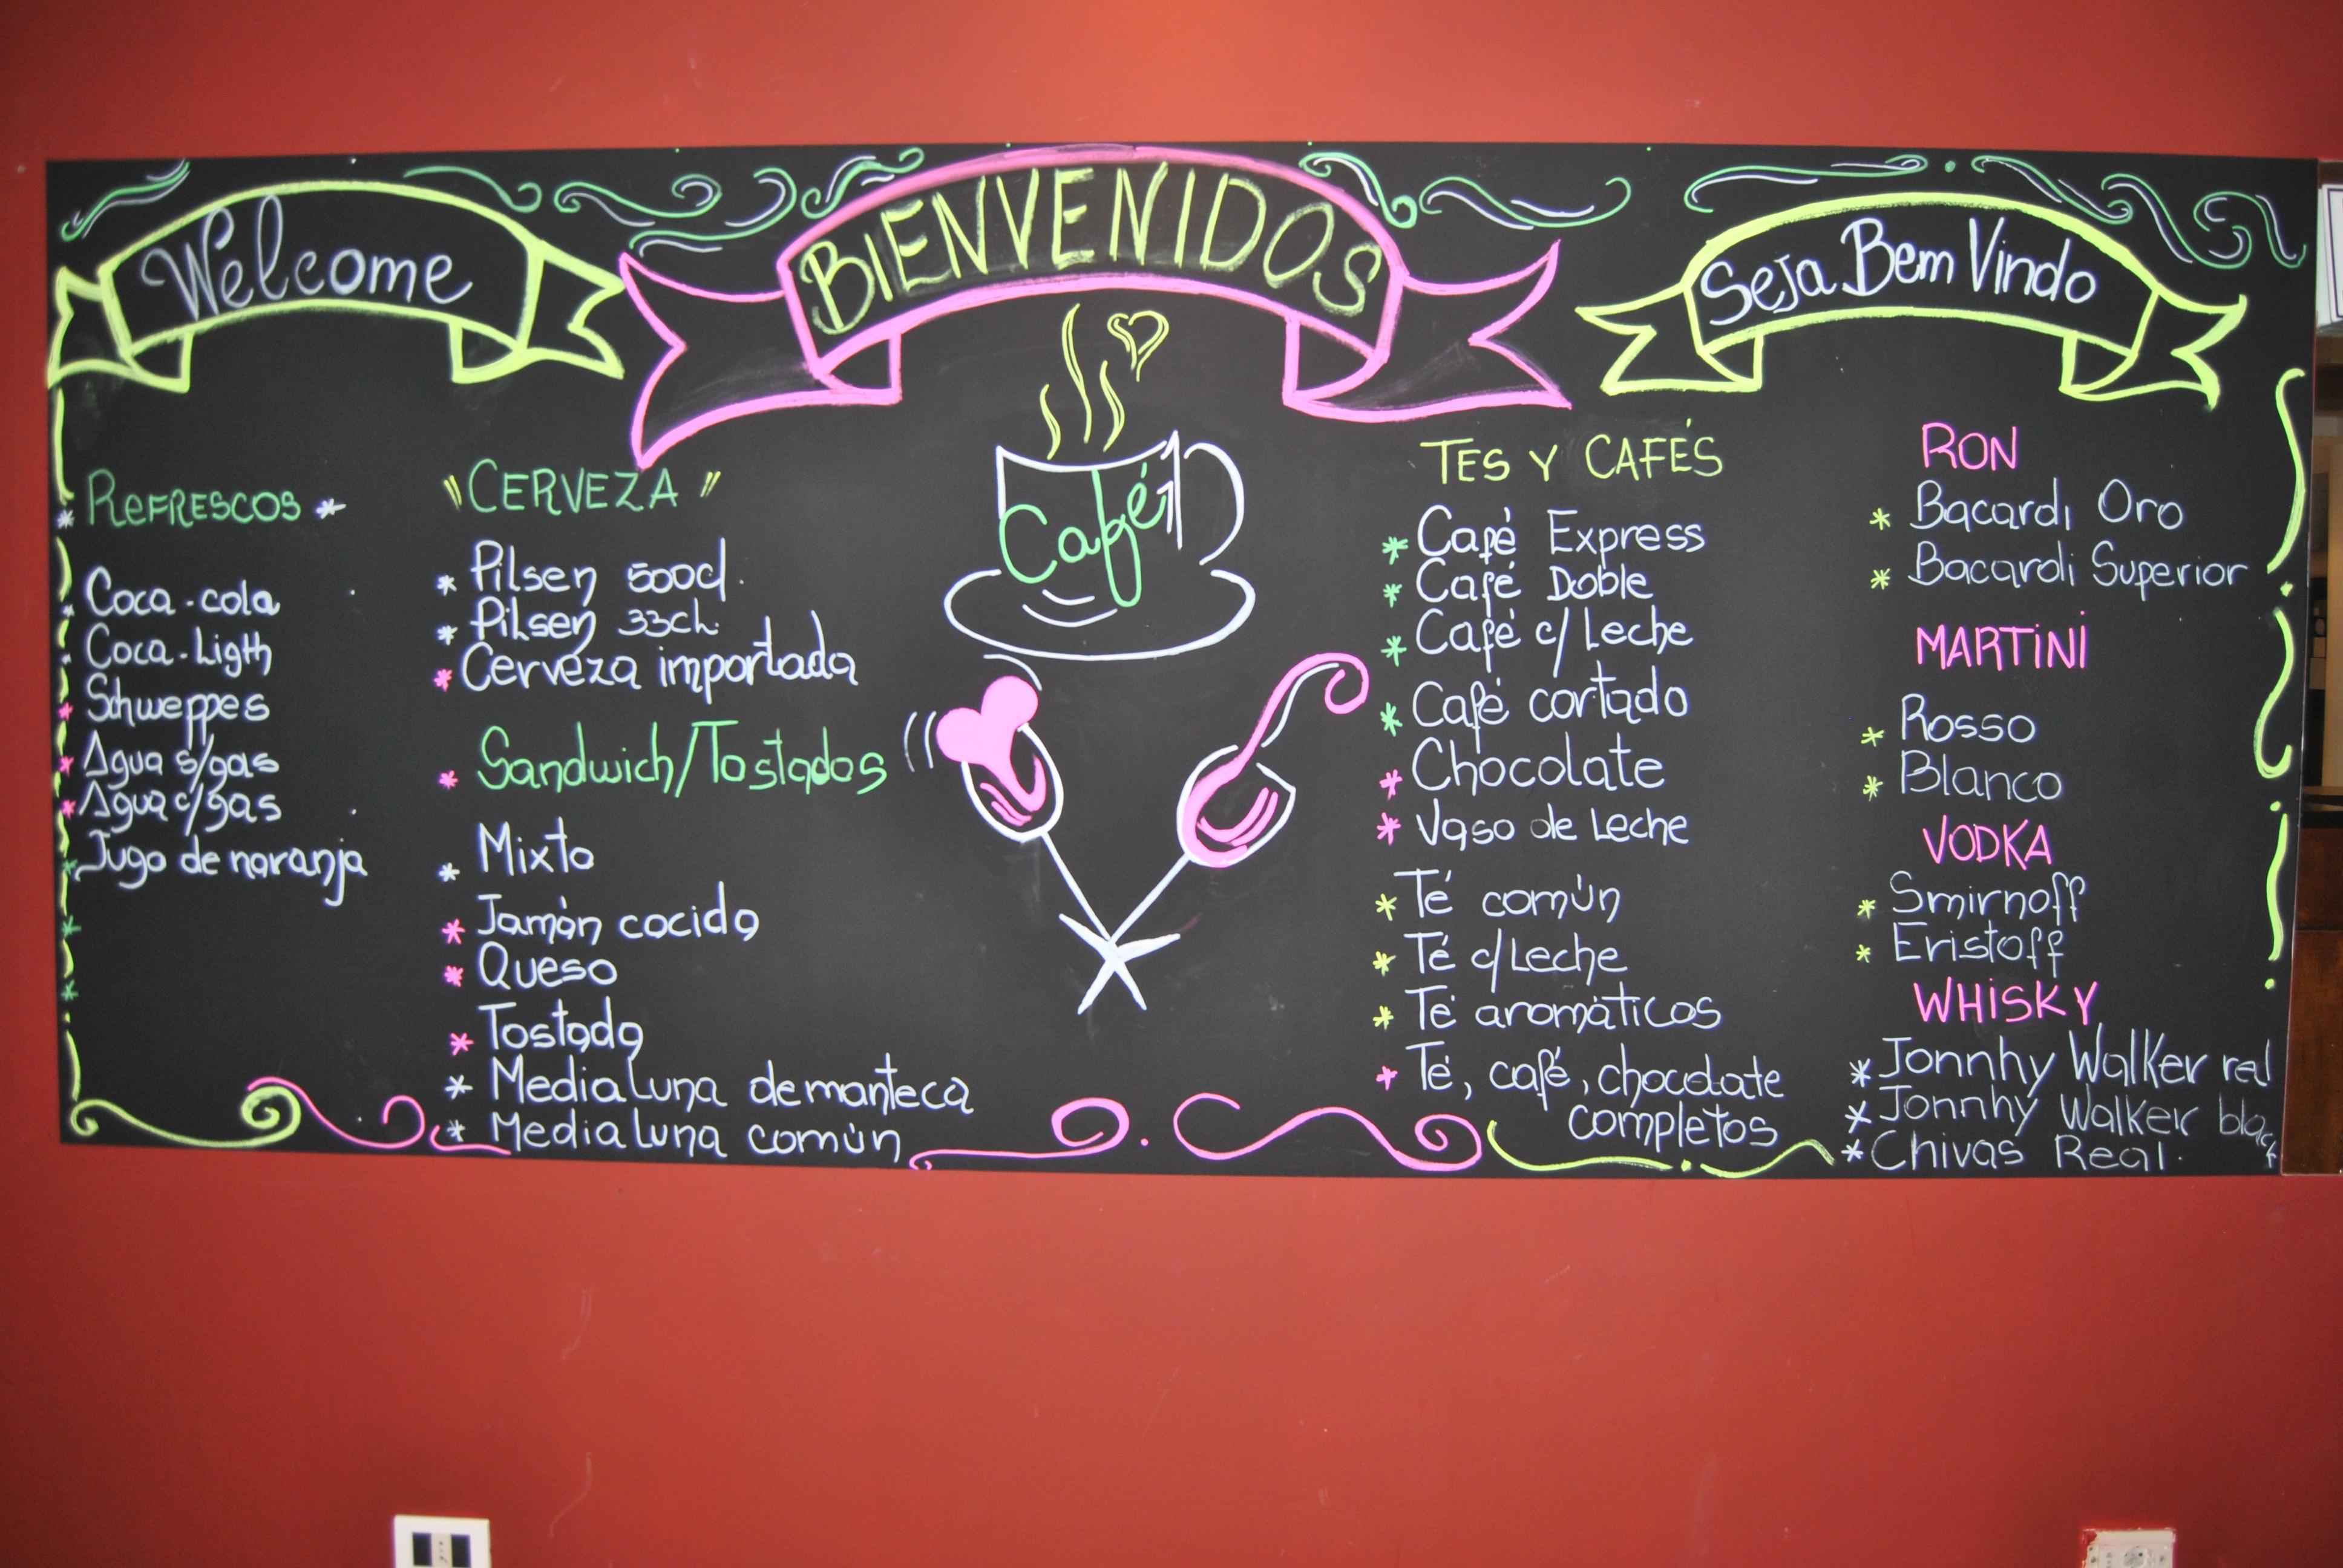 Welcome
BIENVENIDOS
Seja Bem Vindo
REFRESCOS
Coca-cola
Coca-Ligth
Schweppes
Agua s/gas
Agua c/gas
Jugo de naranja
"CERVEZA"
Pilsen 500cl.
Pilsen 33cl.
Cerveza importada
Sandwich/Tostados
Mixto
Jamón cocido
Queso
Tostado
Media Luna de manteca
Media Luna común
Café
TES Y CAFÉS
Café Express
Café Doble
Café c/Leche
Café cortado
Chocolate
Vaso de Leche
Té común
Té c/Leche
Té aromáticos
Té, café, chocolate
completos
RON
Bacardi Oro
Bacardi Superior
MARTINI
Rosso
Blanco
VODKA
Smirnoff
Eristoff
WHISKY
Jonnhy Walker red
Jonnhy Walker black
Chivas Real.